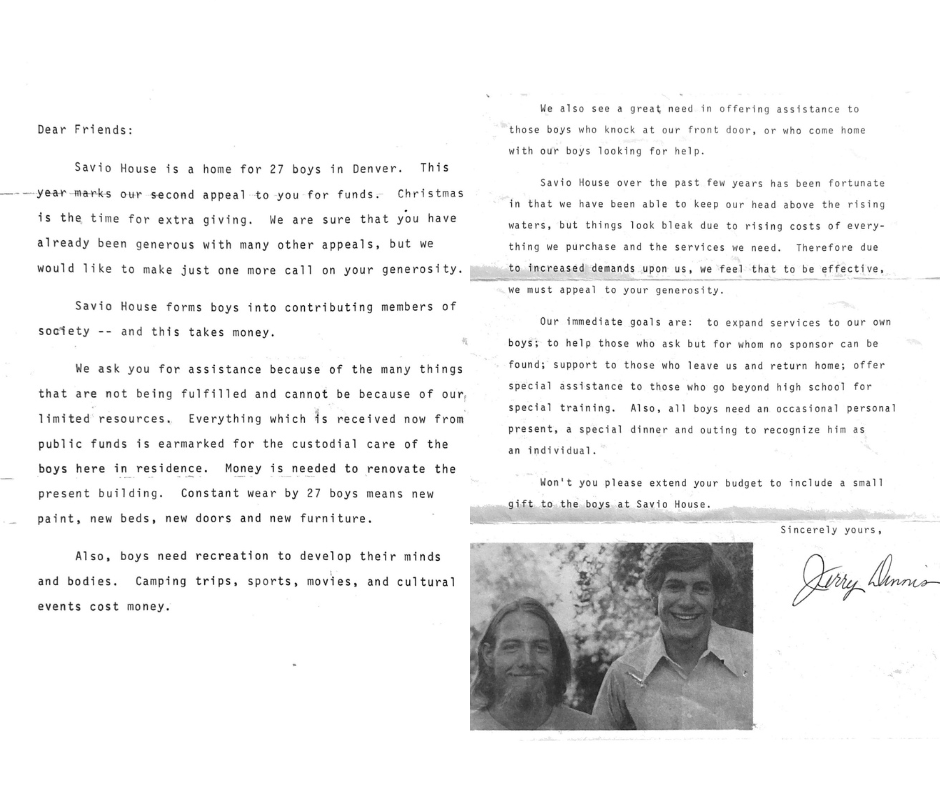 Dear Friends:
Savio House is a home for 27 boys in Denver. This
year marks our second appeal to you for funds. Christmas
is the time for extra giving. We are sure that you have
already been generous with many other appeals, but we
would like to make just one more call on your generosity.
Savio House forms boys into contributing members of
society -- and this takes money.
We ask you for assistance because of the many things
that are not being fulfilled and cannot be because of our
limited resources. Everything which is received now from
public funds is earmarked for the custodial care of the
boys here in residence. Money is needed to renovate the
present building. Constant wear by 27 boys means new
paint, new beds, new doors and new furniture.
Also, boys need recreation to develop their minds
and bodies. Camping trips, sports, movies, and cultural
events cost money.
We also see a great need in offering assistance to
those boys who knock at our front door, or who come home
with our boys looking for help.
Savio House over the past few years has been fortunate
in that we have been able to keep our head above the rising
waters, but things look bleak due to rising costs of every-
thing we purchase and the services we need. Therefore due
to increased demands upon us, we feel that to be effective,
we must appeal to your generosity.
Our immediate goals are: to expand services to our own
boys; to help those who ask but for whom no sponsor can be
found; support to those who leave us and return home; offer
special assistance to those who go beyond high school for
special training. Also, all boys need an occasional personal
present, a special dinner and outing to recognize him as
an individual.
Won't you please extend your budget to include a small
gift to the boys at Savio House.
Sincerely yours,
Jerry Dennis